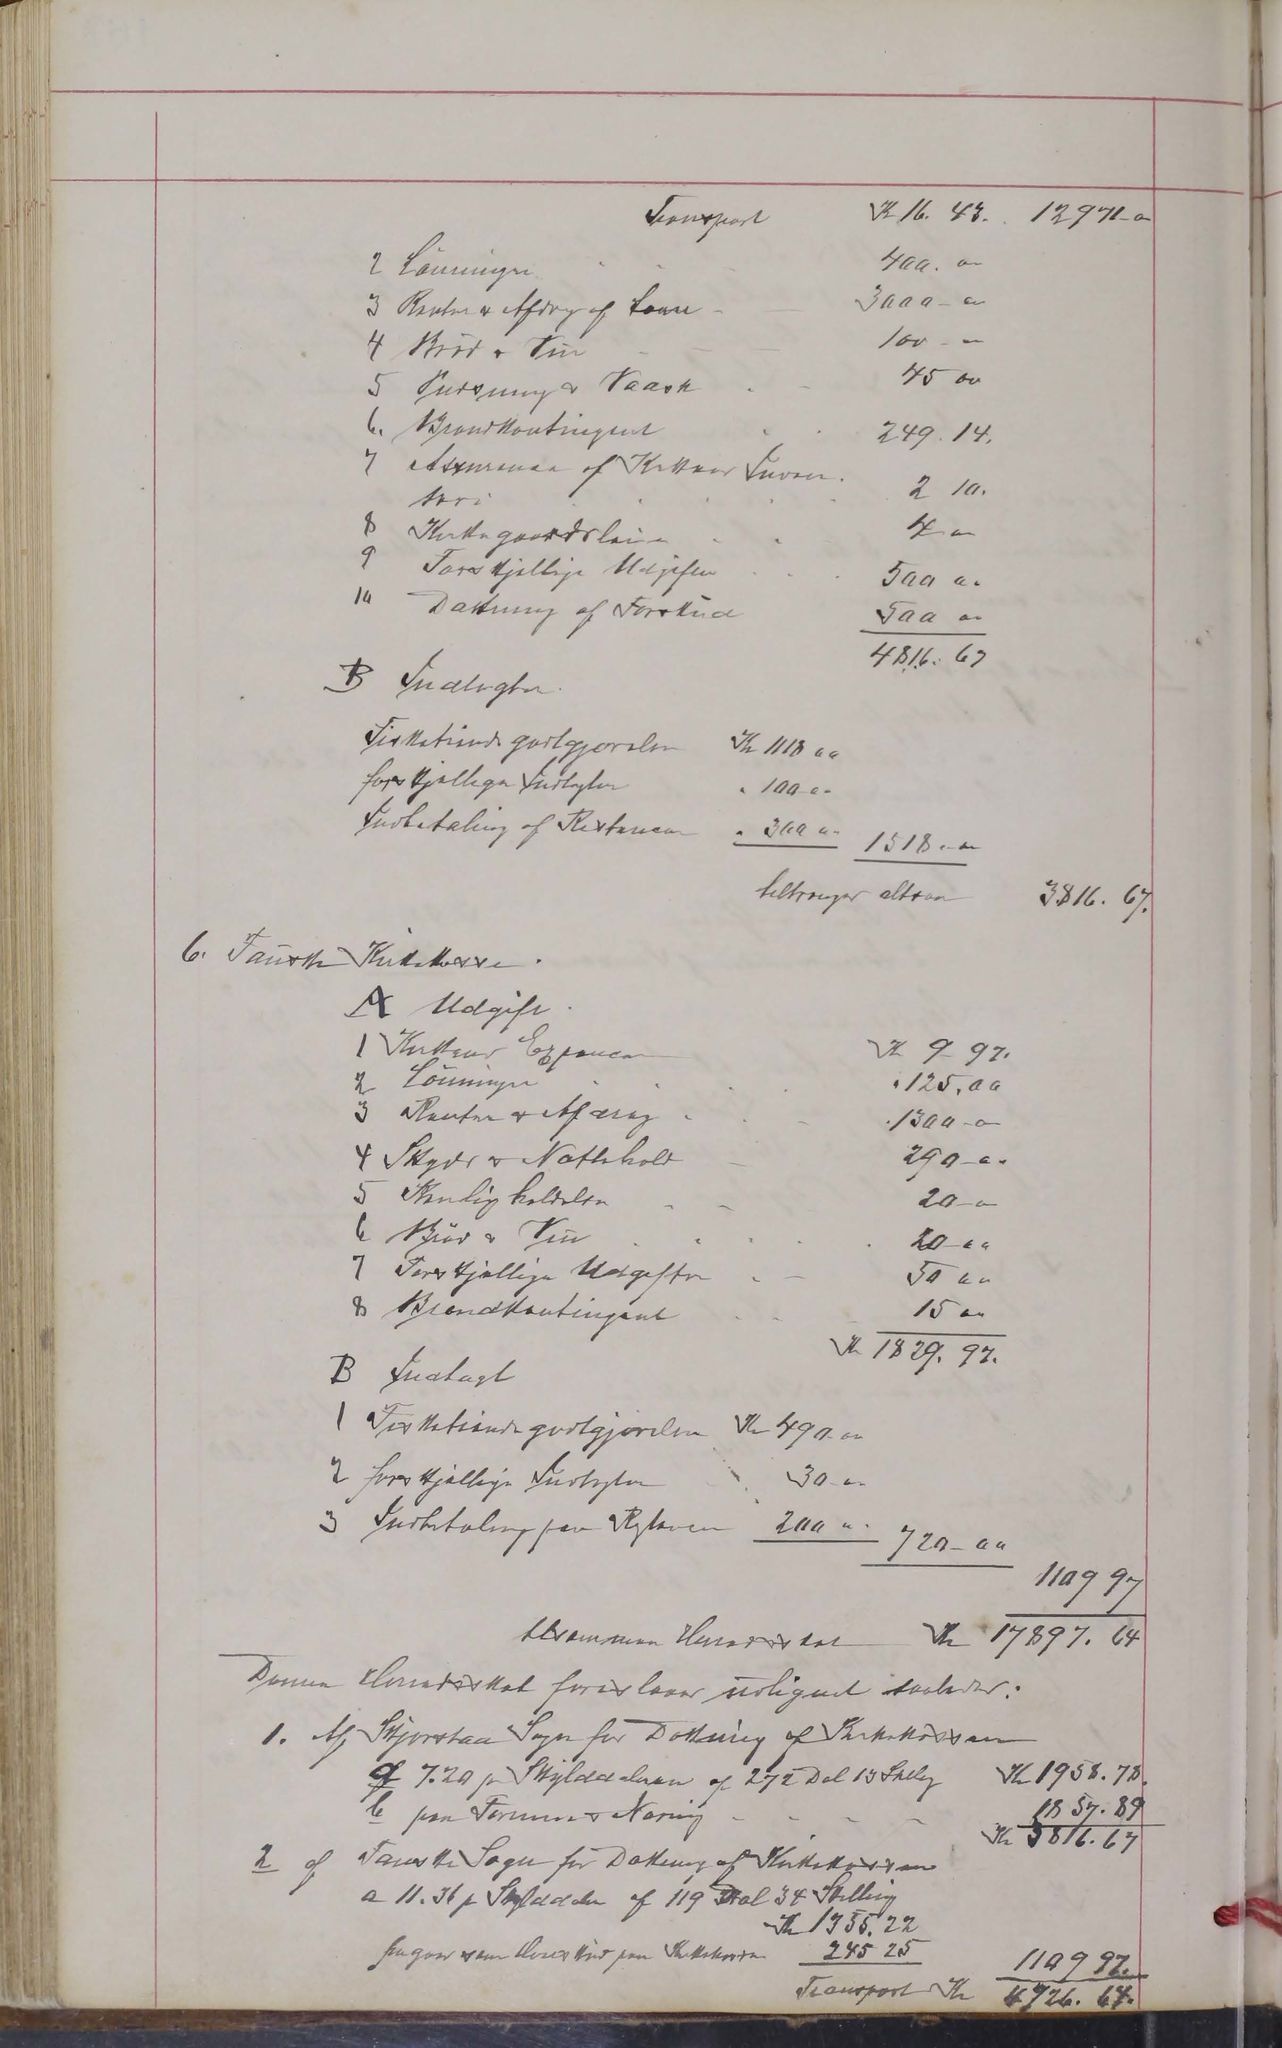 Transport Kr 16. 43. 12971-00
2 Lönninger 400. 00
3 Renter & Afdrag af Laan 3000-00
4 Brød & Vin 100-00
5 Pudsning & Vadsk 45 00
6. Brandkontingent 249. 14.
7 Assurance af Kirkens Inven-
tari 2 10.
8 Kirkegaardsleie 4 00
9 Forskjellige Udgifter 500 00
10 Dækning af Forskud 500 00
4816. 67
B Indtægter.
Fisketiendegodtgjørelse Kr 1118 00
forskjellige Indtægter " 100 00
Indbetaling af Restancer " 300 00 1518.-00
tiltrænger altsaa 3816. 67.
6. Fauske Kirkekasse.
A Udgift.
1 Kirkens Expencer Kr 9 97.
2 Lönninger 125,00
3 Renter & Afdrag 1300-00
4 Skyds & Natthold 290-00
5 Renligholdelse 20-00
6 Brød & Vin 20-00
7 Forskjellige Udgifter 50 00
8 Brandkontingent 15 00
Kr 1829. 97.
B Indtægt
1 Fisketiendegodtgjørelse Kr 490-00
2 forskjellige Indtægter 30-00
3 Indbetaling paa 200 00 720-00
1109 97
tilsammen Herredsskat Kr 17897. 64
Denne Herredsskat foreslaaes udlignet saaledes:
1. Af Skjerstad Sogn for Dækning af Kirkekassen
a 7.20 pr Skylddaleren af 272 Dal 15 Skilg Kr 1958. 78.
b paa Formue & Næring 1857. 89
Kr 3816. 67
2 af Fauske Sogn for Dækning af Kirkekassen
a 11. 36 pr Skylddaler af 119 Dal 34 Skilling
Kr 1355. 22
fragaar som paa Kirkekassen 245 25 1109 97.
Transport Kr 4926. 64.